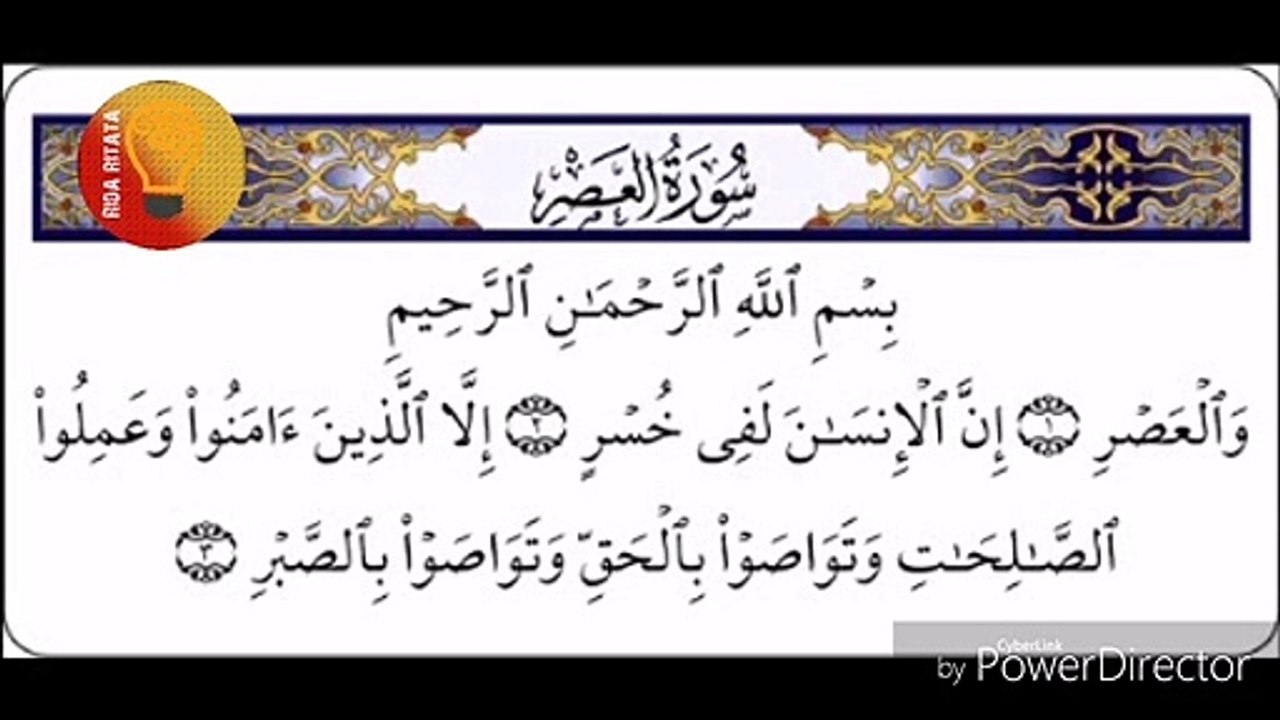 RIDA RITATA
سُورَةُ العَصْرِ
بِسْمِ ٱللَّهِ ٱلرَّحْمَـٰنِ ٱلرَّحِيمِ
وَٱلْعَصْرِ ١ إِنَّ ٱلْإِنسَـٰنَ لَفِى خُسْرٍ ٢ إِلَّا ٱلَّذِينَ ءَامَنُوا۟ وَعَمِلُوا۟
ٱلصَّـٰلِحَـٰتِ وَتَوَاصَوْا۟ بِٱلْحَقِّ وَتَوَاصَوْا۟ بِٱلصَّبْرِ ٣
CyberLink
by PowerDirector